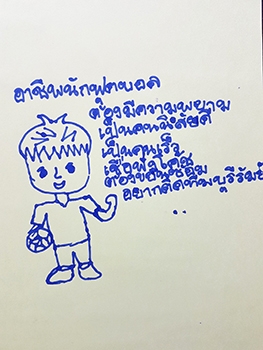 อาชีพนักฟุตบอล
ต้องมีความพยาม
เป็นคนนิสัยดี
เป็นคนเร็ว
เชื่อฟังโค้ช
ต้องขยันซ้อม
อยากติดทีมบุรีรัมย์